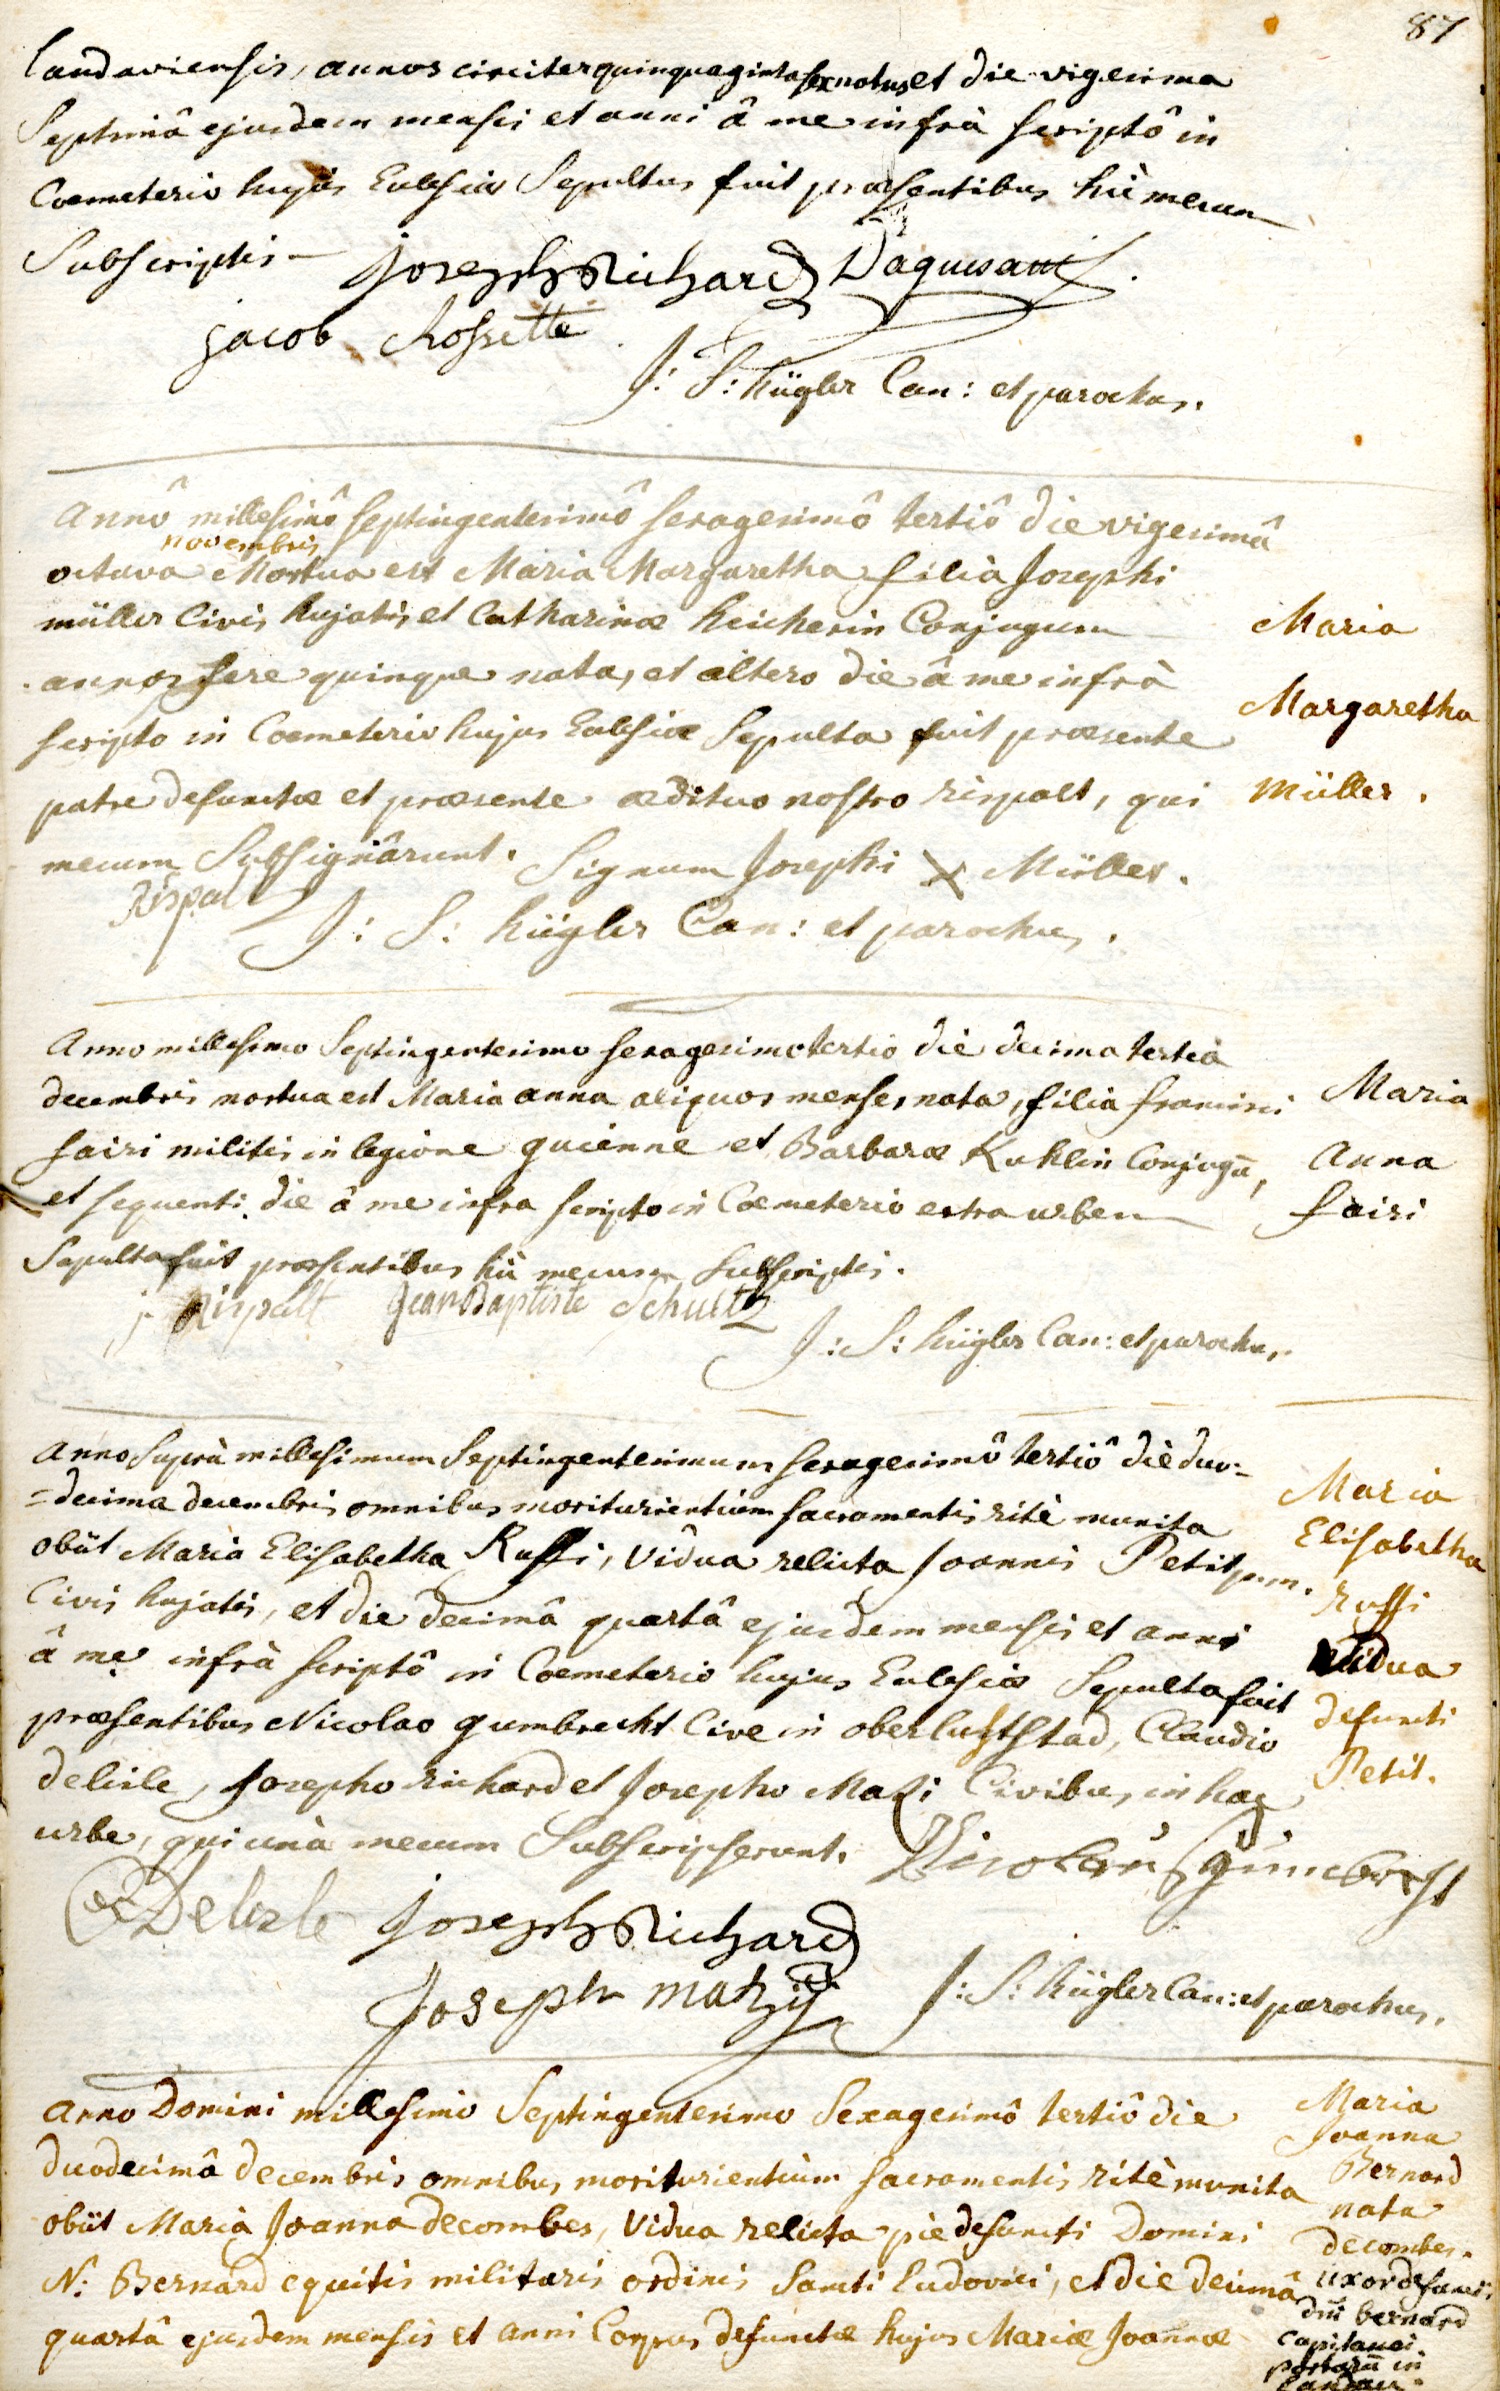 87
Landaviensis, annos circiter quinquaginta sex natus et die vigesima
Septimâ ejusdem mensis et anni â me infrà scriptô in
Coemeterio hujus Eclesiæ Sepultus fuit præsentibus hîc mecum
Subscriptis - Joseph Richard Daguesant
Jacob Rossette
J: S: Kügler Can: et parochus.
Annô millesimô septingentesimô sexagesimô tertiô die vigesimâ
novembris
octava Mortua est Maria Margaretha filia Josephi
müller Civis hujatis et Catharinæ Reicherin Conjugum
annos fere quinque nata, et altero die â me infrà
scripto in Coemeterio hujus Eclesiæ Sepulta fuit præsente
patre defunctæ et præsente ædituo nostro rispalt, qui
mecum Subsignârunt. Signum Josephi X Müller.
Rispalt
J: S: Kügler Can: et parochus.
Maria
Margaretha
Müller.
Anno millesimo Septingentesimo sexagesimo tertio die decima tertia
decembris mortua est Maria anna aliquos menses nata, filia francisci
fairi militis in legione guienne et Barbaræ Kuhlin Conjugū,
et sequenti die â me infra scripto in Coemeterio extra urbem
Sepulta fuit præsentibus hîc mecum subscriptis.
j Rispalt Jean Baptiste Schultz
J: S: Kügler Can: et parochus.
Maria
Anna
fairi
Anno Suprà millesimum Septingentesimum sexagesimô tertiô die duo=
=decima decembris omnibus moriturientium sacramentis ritè munita
obiit Maria Elisabetha Ruffi, Vidua relicta Joannis Petitjean.
Civis hujatis, et die decimâ quartâ ejusdem mensis et anni
â me infrà scriptô in Coemeterio hujus Eclesiæ Sepulta fuit
præsentibus Nicolao gumbrecht Cive in oberluststad, Claudio
delisle, Josepho richard et Josepho Mazi Civibus in hac
urbe, qui unà mecum Subscripserunt. Nicolaus Gumbrecht
Delisle Joseph Richard
Joseph matzy J: S: Kügler Can: et parochus.
Maria
Elisabetha
ruffi
vidua
defuncti
Petit.
Anno Domini millesimo Septingentesimo Sexagesimô tertiô die
duodecimâ decembris omnibus moriturientium sacramentis ritè munita
obiit Maria Joanna decombes, Vidua relicta pie defuncti Domini
N: Bernard equitis militaris ordinis Sancti Ludovici, et die decimâ
quartâ ejusdem mensis et anni Corpus defunctæ hujus Mariæ Joannæ
Maria
Joanna
Bernard
nata
decombes.
uxor defuncti
dni bernard
Capitanei
portarū in
Landau.